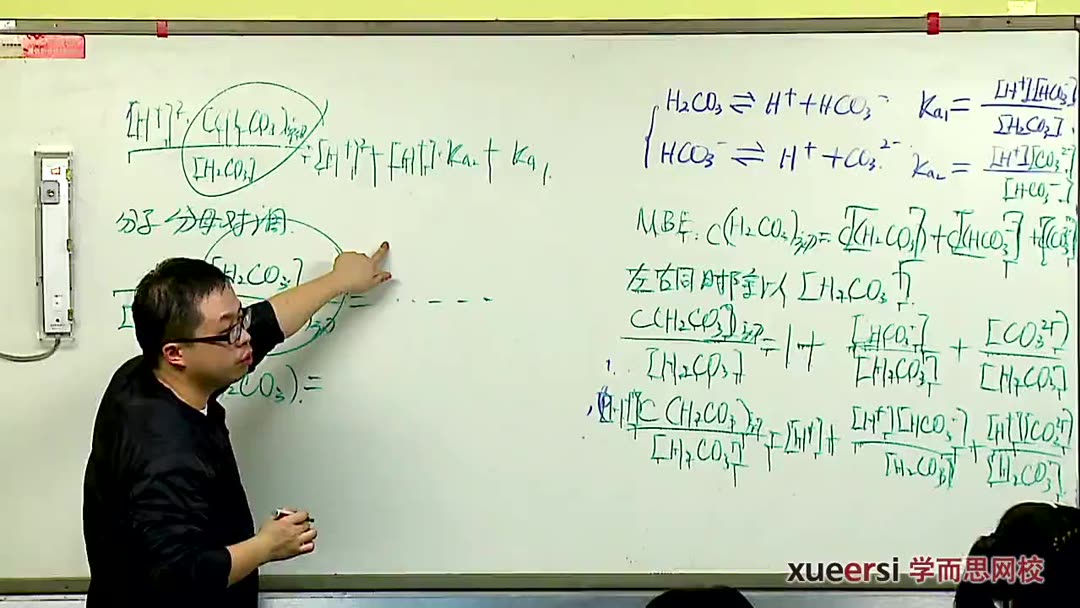 [H⁺]²·C(H₂CO₃)初 / [H₂CO₃] = [H⁺]² + [H⁺]·Ka₁ + Ka₁
分子分母对调.
[H₂CO₃]
= ······
H₂CO₃ ⇌ H⁺ + HCO₃⁻ Ka₁ = [H⁺][HCO₃⁻] / [H₂CO₃]
HCO₃⁻ ⇌ H⁺ + CO₃²⁻ Ka₂ = [H⁺][CO₃²⁻] / [HCO₃⁻]
MBE: C(H₂CO₃)初 = [H₂CO₃] + [HCO₃⁻] + [CO₃²⁻]
左右同时除以 [H₂CO₃]
C(H₂CO₃)初 / [H₂CO₃] = 1 + [HCO₃⁻] / [H₂CO₃] + [CO₃²⁻] / [H₂CO₃]
[H⁺]C(H₂CO₃)初 / [H₂CO₃] = [H⁺] + [H⁺][HCO₃⁻] / [H₂CO₃] + [H⁺][CO₃²⁻] / [H₂CO₃]
xueersi 学而思网校